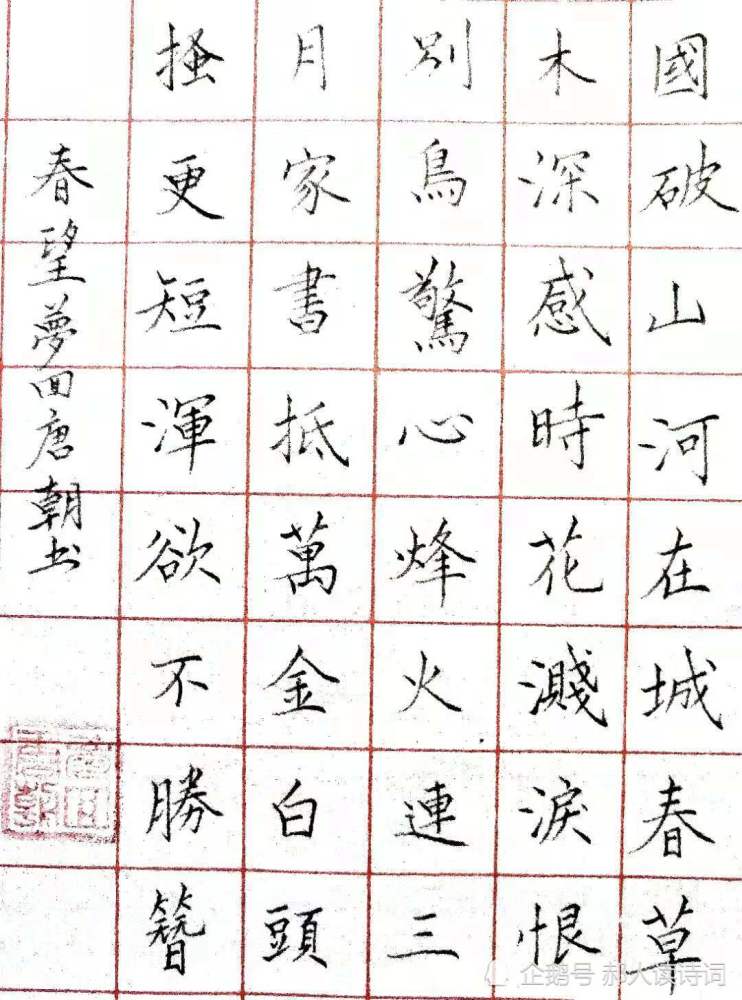 國破山河在城春草
木深感時花濺淚恨
別鳥驚心烽火連三
月家書抵萬金白頭
搔更短渾欲不勝簪
春望夢回唐朝书
企鹅号 郝人读诗词